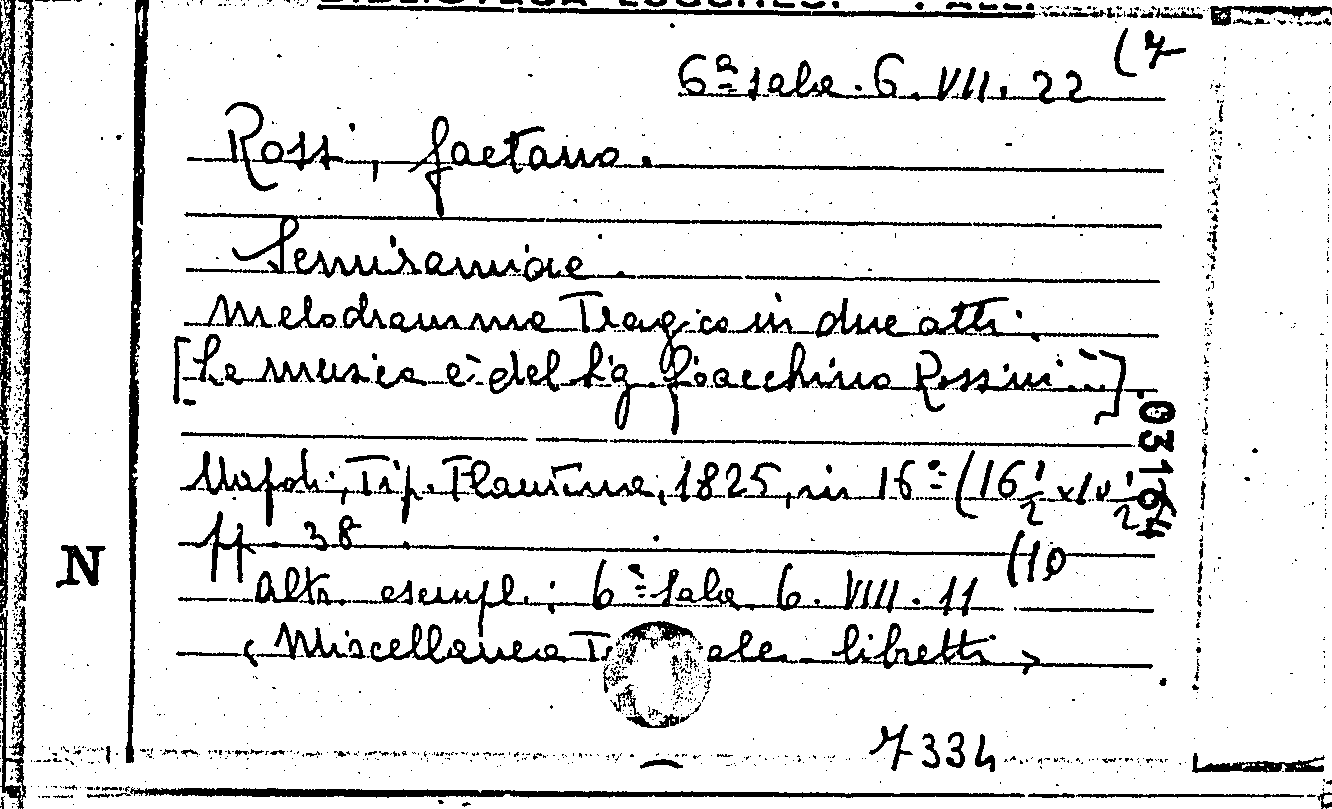 6ª Sala. 6. VII. 22 (7
Rossi, Gaetano.
Semiramide.
Melodramma Tragico in due atti.
[La musica è del Sig. Gioacchino Rossini...]
03164
Napoli, Tip. Flautina, 1825, in 16° (16 1/2 x 10 1/2)
pp. 38.
N
Altr. esempl.: 6ª Sala. 6. VIII. 11 (10
< Miscellanea libretti >
7334